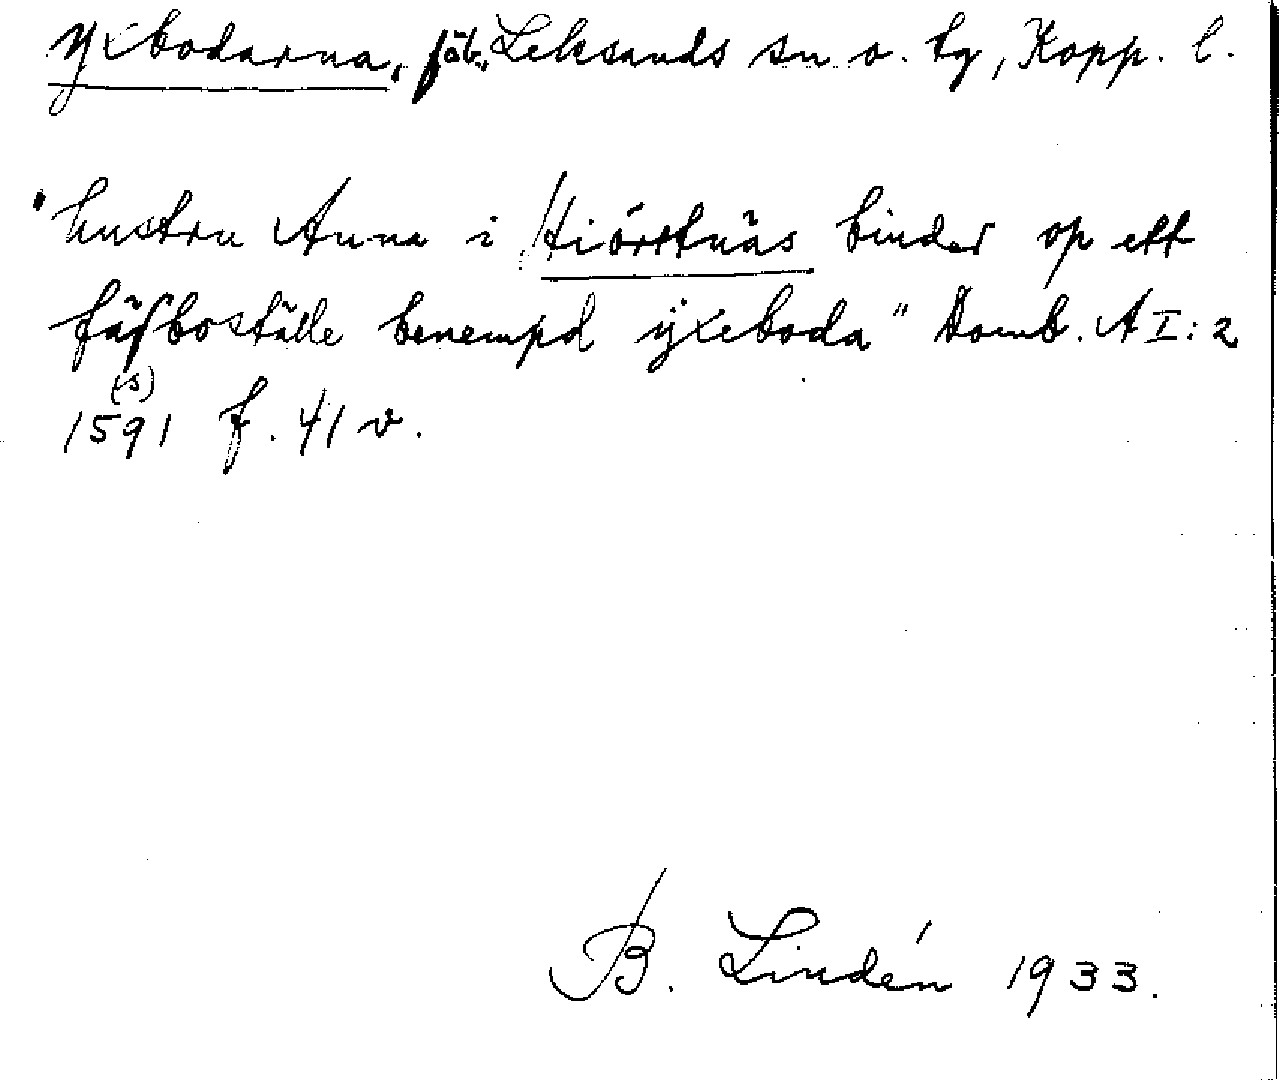 Yxbodarna, fäb., Leksands sn o. tg, Kopp. l.
"hustru Anna i Hiörttnäs binder op ett
fäsboställe benempd ÿxeboda" Domb. A I: 2
(s)
1591 f. 41 v.
B. Lindén 1933.